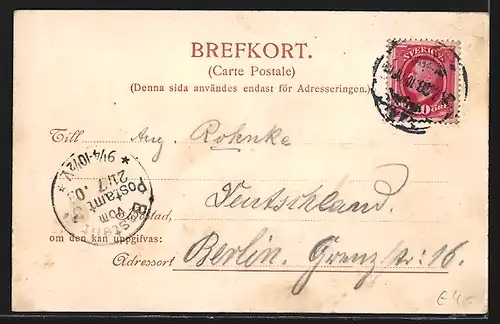 BREFKORT.
(Carte Postale)
(Denna sida användes endast för Adresseringen.)
SVERIGE
10 ÖRE
Till Aug. Rohnke
Deutschland.
Bostad,
om den kan uppgifvas:
Adressort Berlin. Grenzstr: 16.
Bestellt vom Postamt
21/7.03
9 1/4-10 1/2 V.
E4-